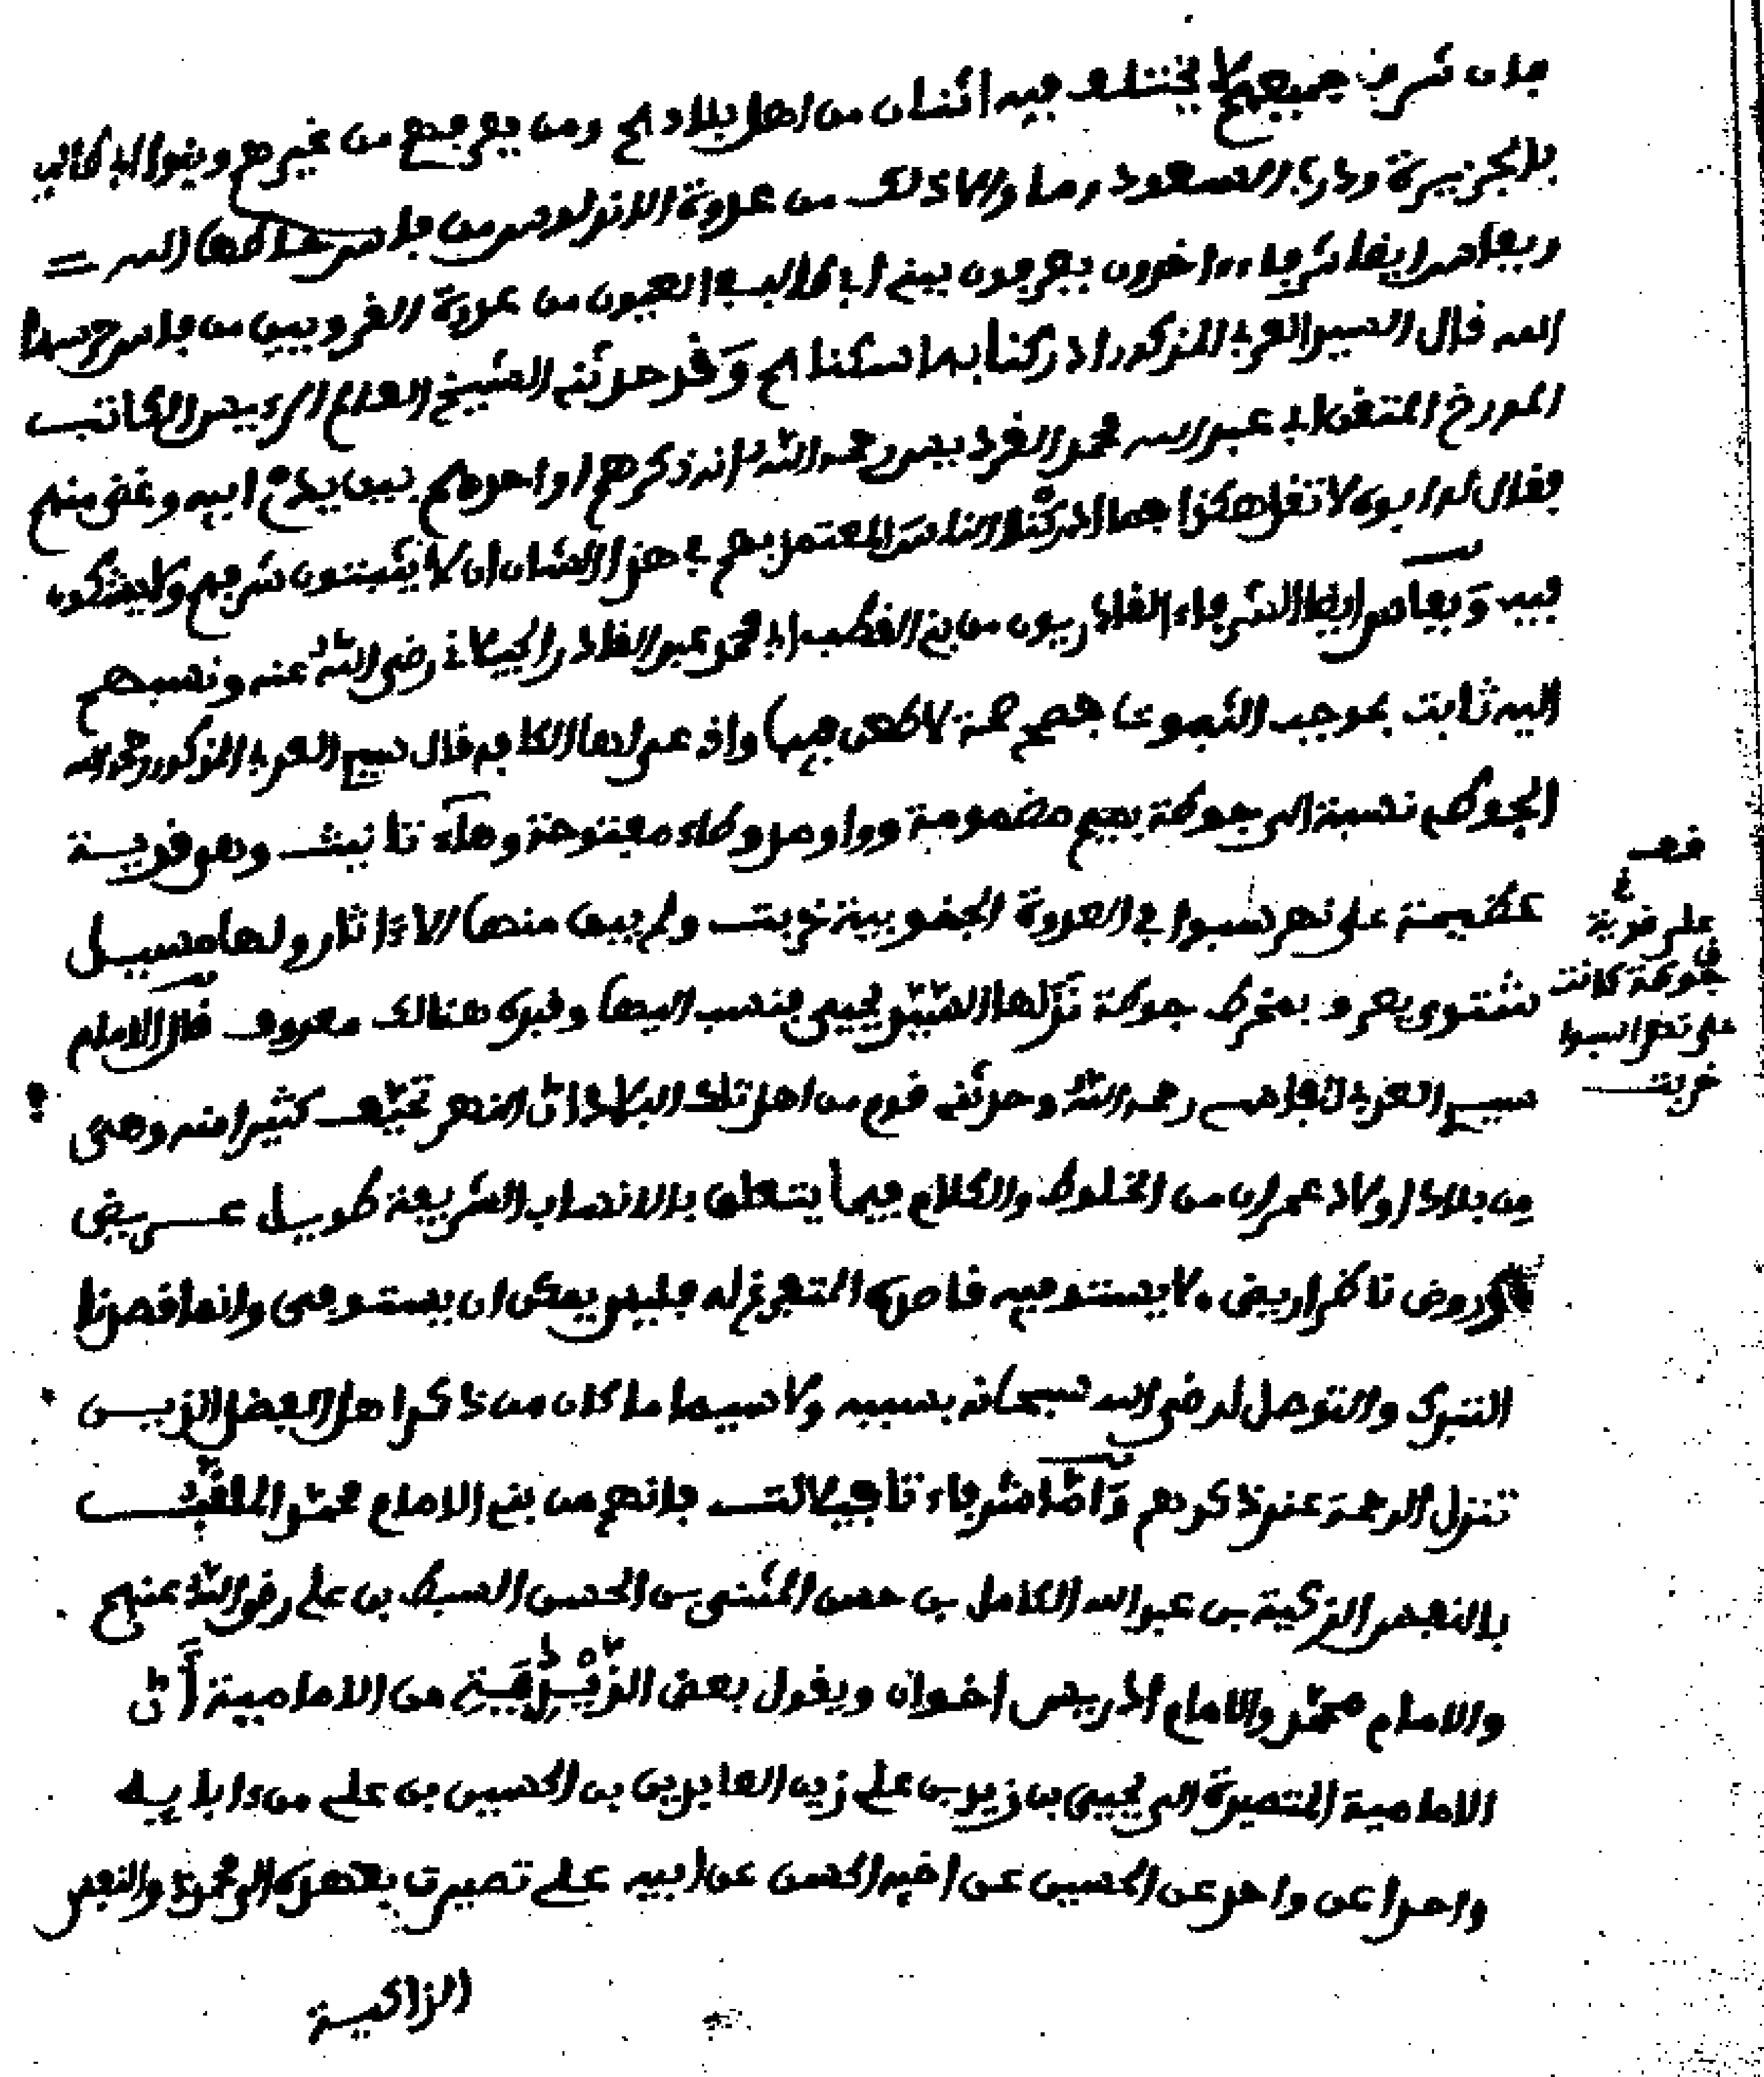 فان شرف جميعهم لا يختلف فيه اثنان من اهل بلادهم ومن يعرفهم من غيرهم وبنوا ابي طالب
بالجزيرة ودار ابن مسعود وما والا ذلك من عدوة الاندلس من فاس حاطها الله
وبفاس ايضا شرفاء ءاخرون يعرفون ببني ابي طالب العيون من عدوة القرويين من فاس حرسها
الله قال السيد العربي المذكور ادركنا بها سكناهم وقد حدثني الشيخ العلام الرءيس الكاتب
المورخ المتفنن ابي عبد الله محمد الغرديس رحمه الله انه ذكرهم او احدهم بين يدي ابيه وغض منهم
فقال له ابوه لا تقل هكذا فما ادركنا الناس المعتمد بهم في هذا الشان الا يثبتون شرفهم ولا يشكون
فيه وبفاس ايضا الشرفاء القادريون من بني القطب ابي محمد عبد القادر الجيلاني رضي الله عنه ونسبهم
اليه ثابت بموجب الثبوت صحيح صحة لا طعن فيها واذ عد لها الكافه قال سيدي العربي المذكور رحمه الله
الجوطي نسبة الى جوطة بجيم مضمومة وواو مد وطاء مفتوحة وهاء تانيث وهي قرية
عظيمة على نهر سبوا في العدوة الجنوبية خربت ولم يبق منها الا ءاثار ولها مسيل
شتوي يعرف بمخرط جوطة نزلها السيد يحيى فنسب اليها وقبره هنالك معروف قال الامام
سيدي العربي الفاسي رحمه الله وحدثني قوم من اهل تلك البلاد ان النهر تحيف كثيرا منه وهي
من بلاد اولاد عمران من الخلوط والكلام فيما يتعلق بالانساب الشريفة طويل عريض
وروض ناضر اريض لا يستوفيه قاصد التفرغ له فليس يمكن ان يستوفى وانما قصدنا
التبرك والتوصل لرضى الله سبحانه بسببه ولا سيما ما كان من ذكر اهل الفضل الذين
تنزل الرحمة عند ذكرهم واما شرفاء تافيلالت فانهم من بني الامام محمد الملقب
بالنفس الزكية بن عبد الله الكامل بن حسن المثنى بن الحسن السبط بن علي رضي الله عنهم
والامام محمد والامام ادريس اخوان ويقول بعض الزيدية من الامامية ان
الامامية المتصيرة الى يحيى بن زيد بن علي زين العابدين بن الحسين بن علي من ءابايه
واحدا عن واحد عن الحسين عن اخيه الحسن عن ابيه علي تصيرت بعهده الى محمد والنفس
الزاكية
قف
على قرية
جوطة كانت
على نهر سبوا
خربت